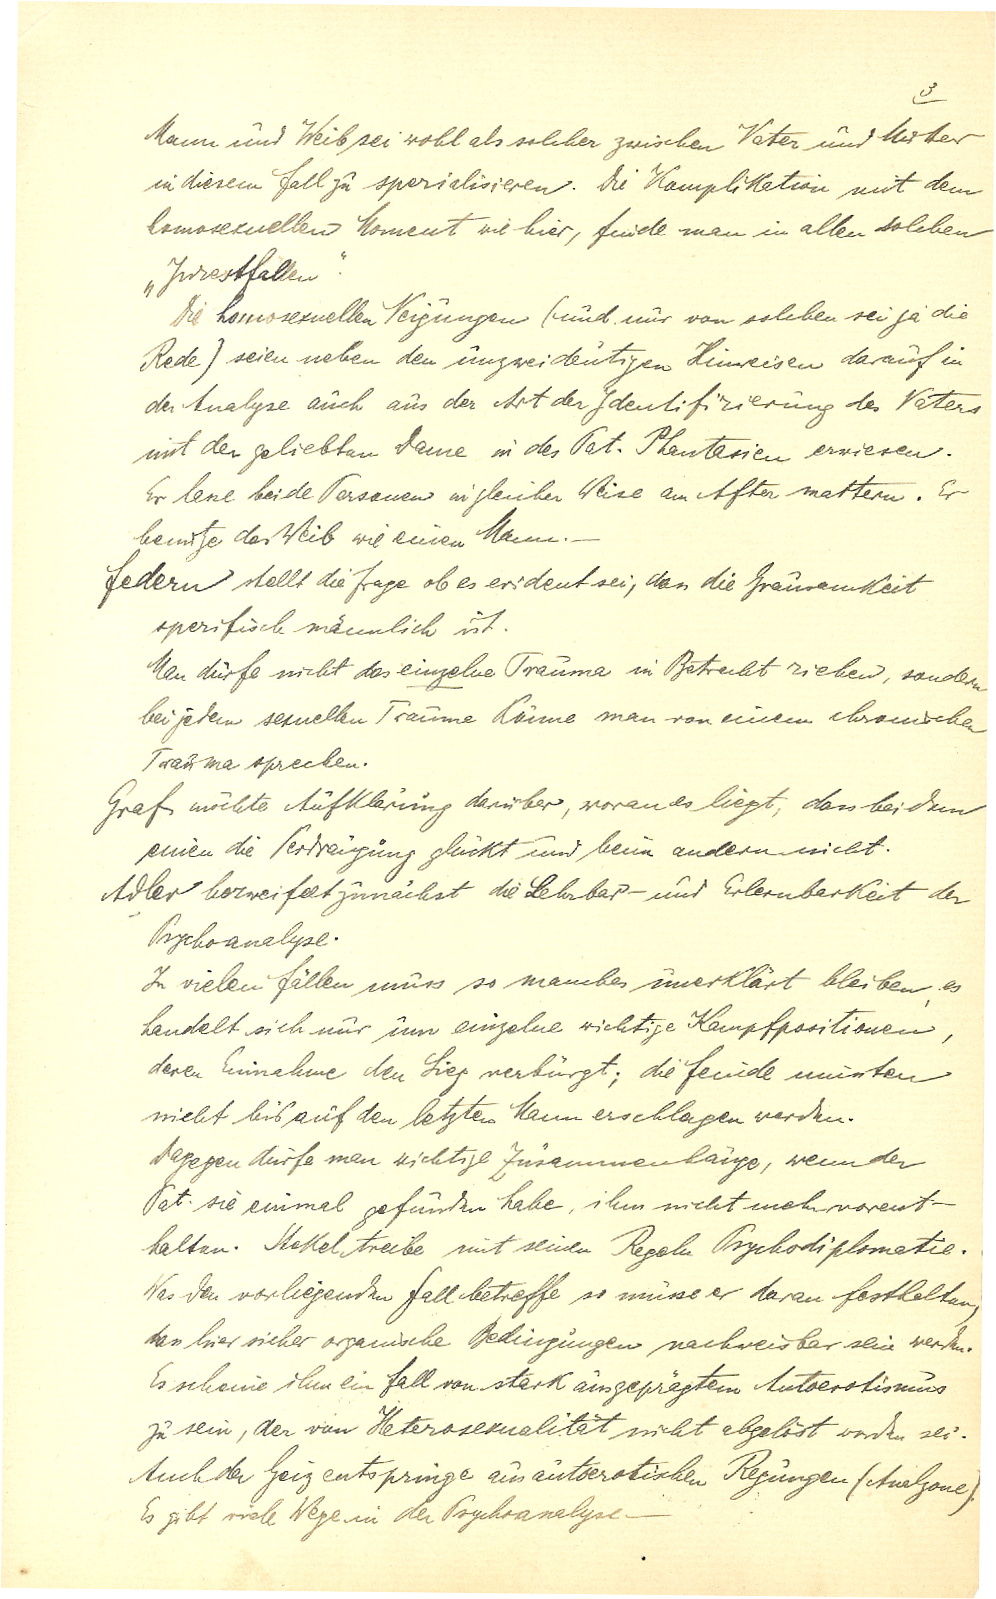 3
Mann und Weib sei wohl als solcher zwischen Vater und Mutter
in diesem Fall zu spezialisieren. Die Komplikation mit dem
homosexuellen Moment wie hier, finde man in allen solchen
„Inzestfällen“.
Die homosexuellen Neigungen (und nur von solchen sei ja die
Rede) seien neben den unzweideutigen Hinweisen darauf in
der Analyse auch aus der Art der Identifizierung des Vaters
mit der geliebten Dame in des Pat. Phantasien erwiesen.
Er lasse beide Personen in gleicher Weise am After martern. Er
benütze das Weib wie einen Mann.—
Federn stellt die Frage ob es evident sei, dass die Grausamkeit
spezifisch männlich ist.
Man dürfe nicht das einzelne Trauma in Betracht ziehen, sondern
bei jedem sexuellen Traume könne man von einem chronischen
Trauma sprechen.
Graf möchte Aufklärung darüber, woran es liegt, dass bei dem
einen die Verdrängung glückt und beim andern nicht.
Adler bezweifelt zunächst die Lehrbar- und Erlernbarkeit der
Psychoanalyse.
In vielen Fällen muss so manches unerklärt bleiben, es
handelt sich nur um einzelne wichtige Kampfpositionen,
deren Einnahme den Sieg verbürgt; die Feinde müssten
nicht bis auf den letzten Mann erschlagen werden.
Dagegen dürfe man wichtige Zusammenhänge, wenn der
Pat. sie einmal gefunden habe, ihm nicht mehr vorent-
halten. Stekel treibe mit seinen Regeln Psychodiplomatie.
Was den vorliegenden Fall betreffe so müsse er daran festhalten,
dass hier sicher organische Bedingungen nachweisbar sein werden.
Es scheine ihm ein Fall von stark ausgeprägtem Autoerotismus
zu sein, der von Heterosexualität nicht abgelöst worden sei.
Auch der Geiz entspringe aus autoerotischen Regungen (Analzone).
Es gibt viele Wege in der Psychoanalyse—